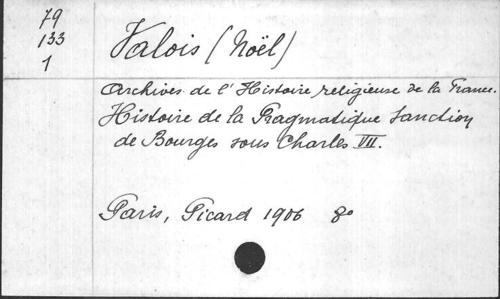 79
133
1
Valois (Noël)
Archives de l'Histoire religieuse de la France.
Histoire de la Pragmatique Sanction
de Bourges sous Charles VII.
Paris, Picard 1906 8°